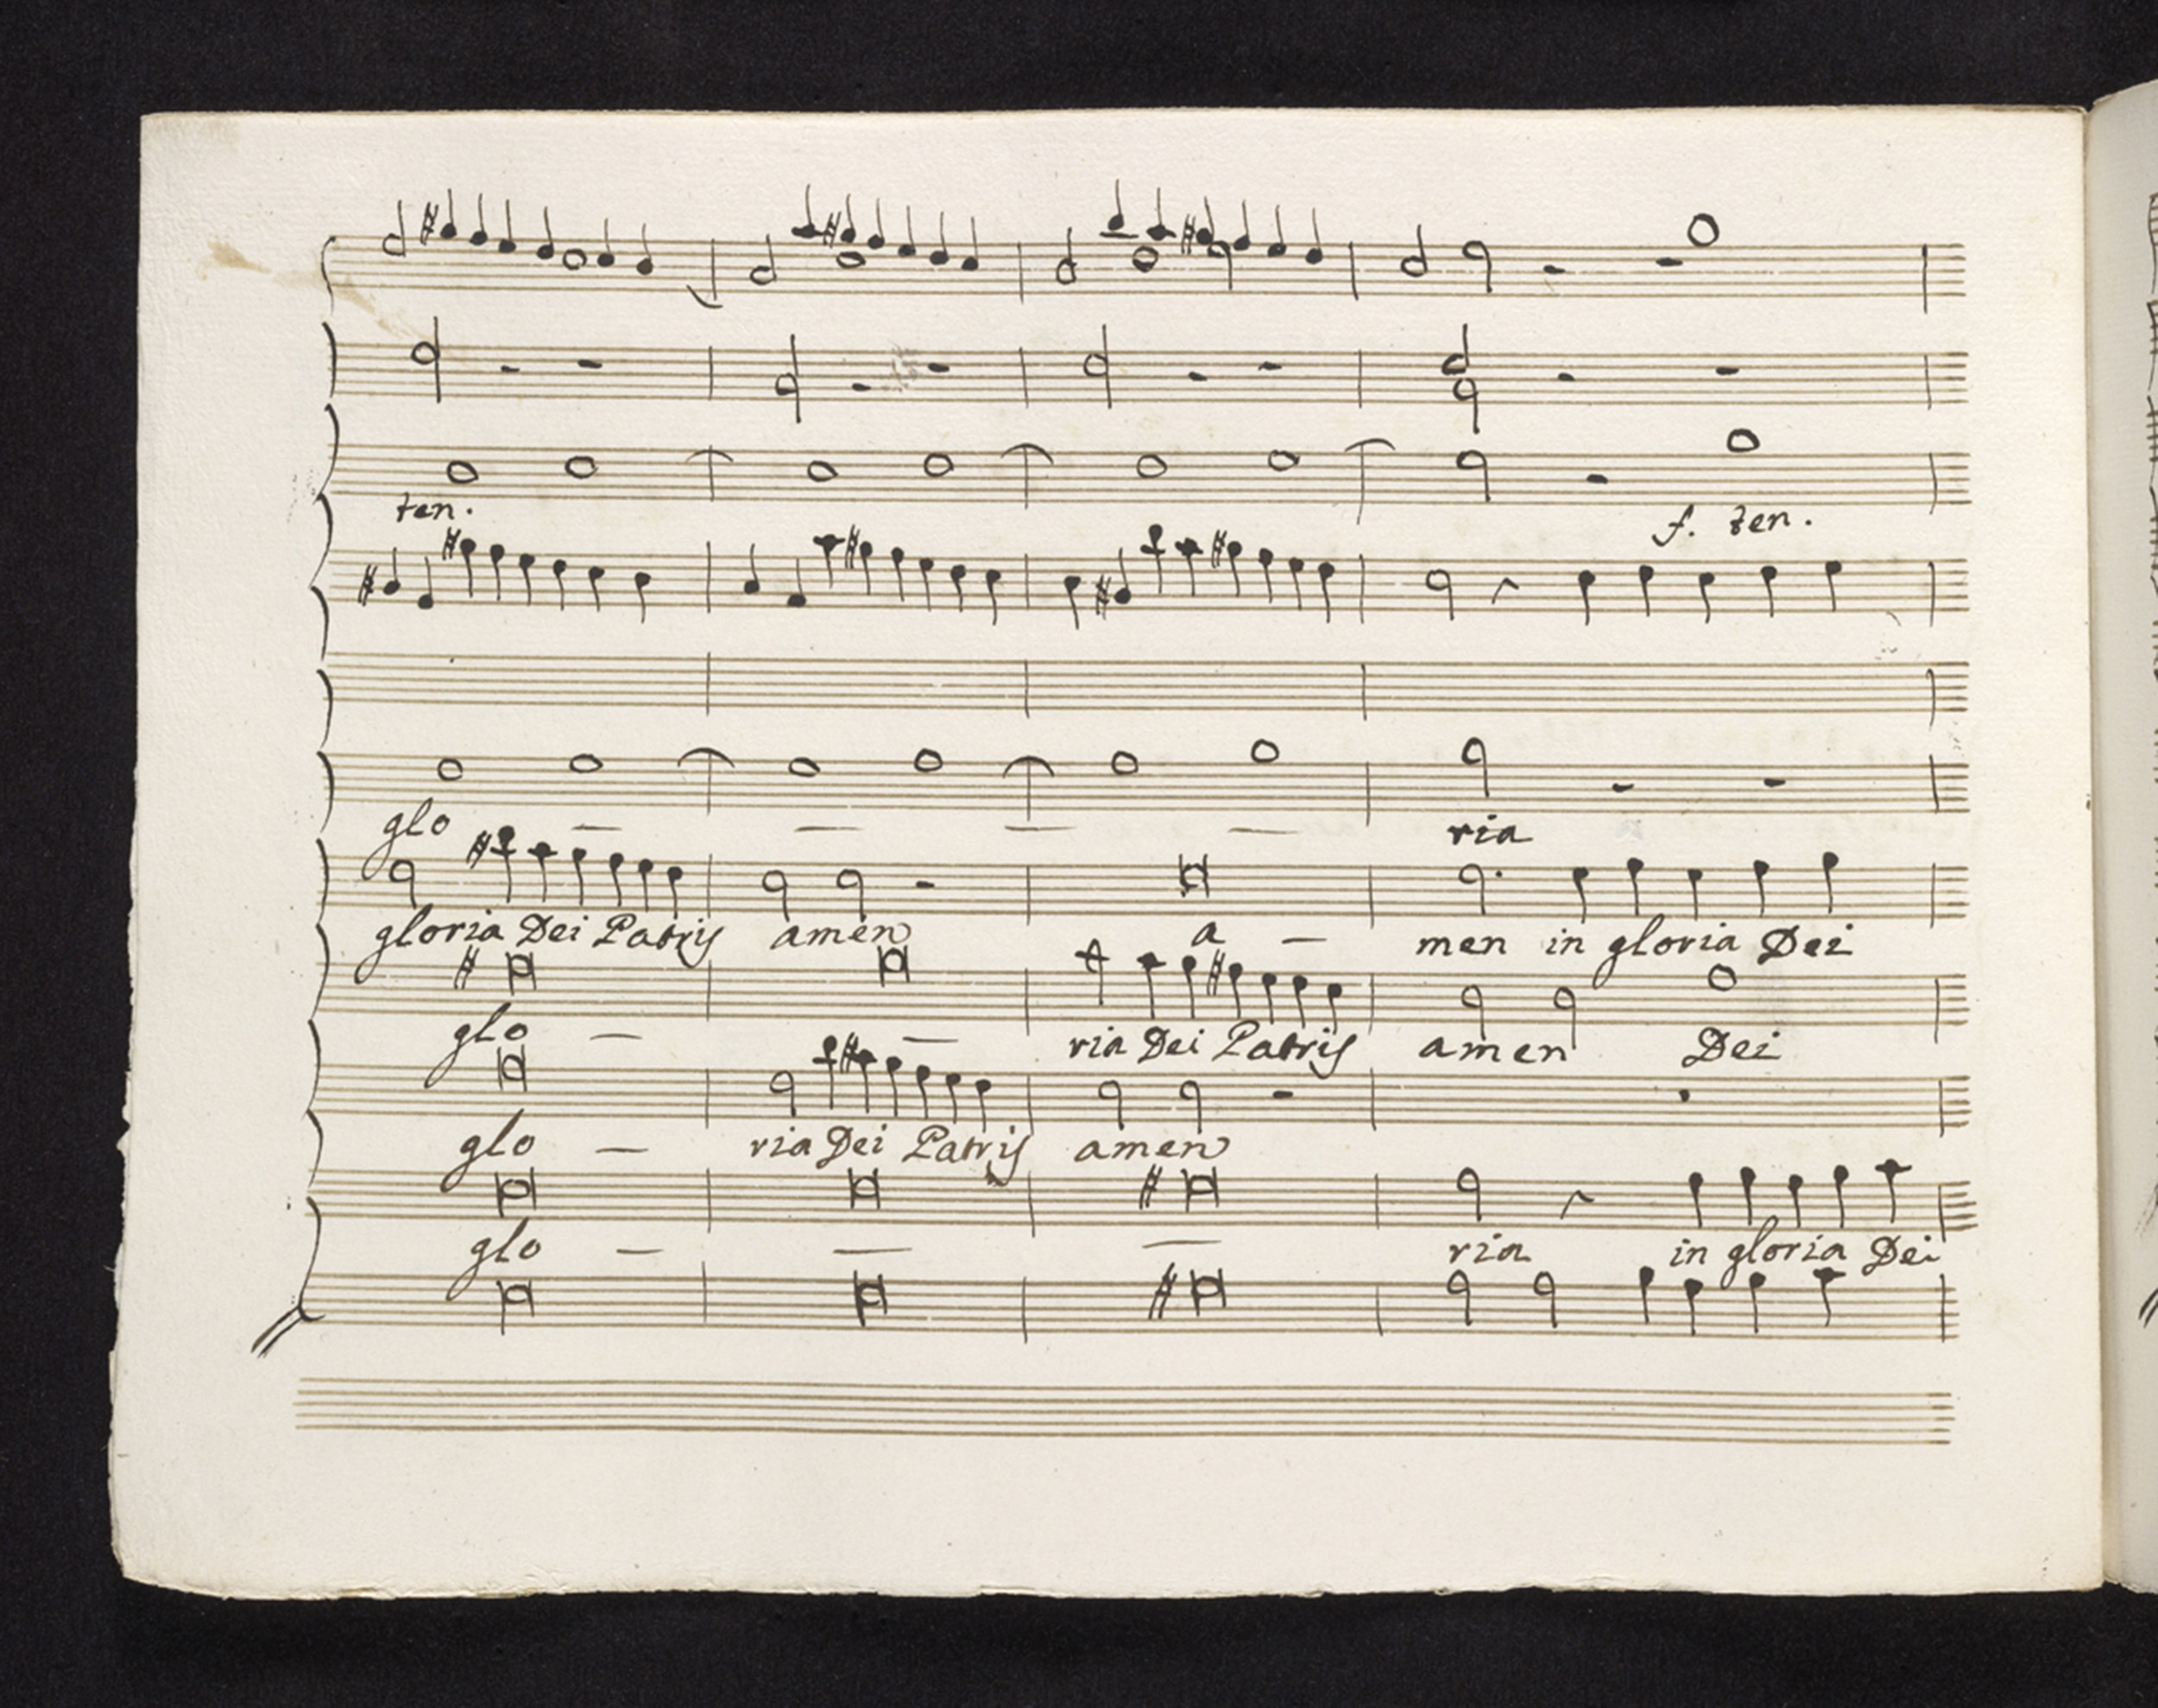 ten. f. ten.
glo — — — — ria
gloria Dei Patris amen a — men in gloria Dei
glo — — ria Dei Patris amen Dei
glo — ria Dei Patris amen
glo — — — ria in gloria Dei